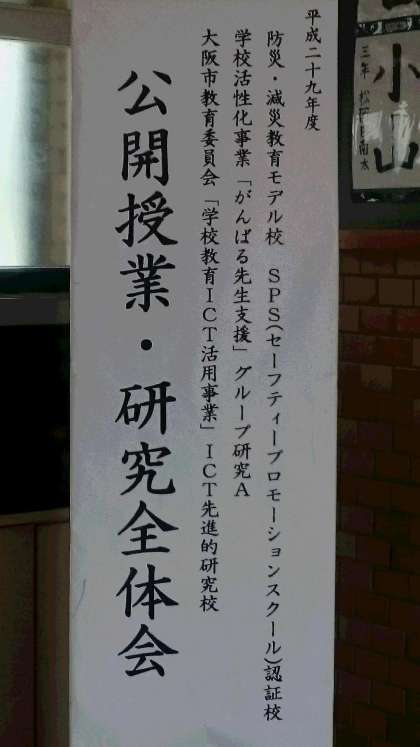 平成二十九年度
防災・減災教育モデル校　ＳＰＳ(セーフティープロモーションスクール)認証校
学校活性化事業「がんばる先生支援」グループ研究Ａ
大阪市教育委員会「学校教育ＩＣＴ活用事業」ＩＣＴ先進的研究校
公開授業・研究全体会
小
山
三年 松
太